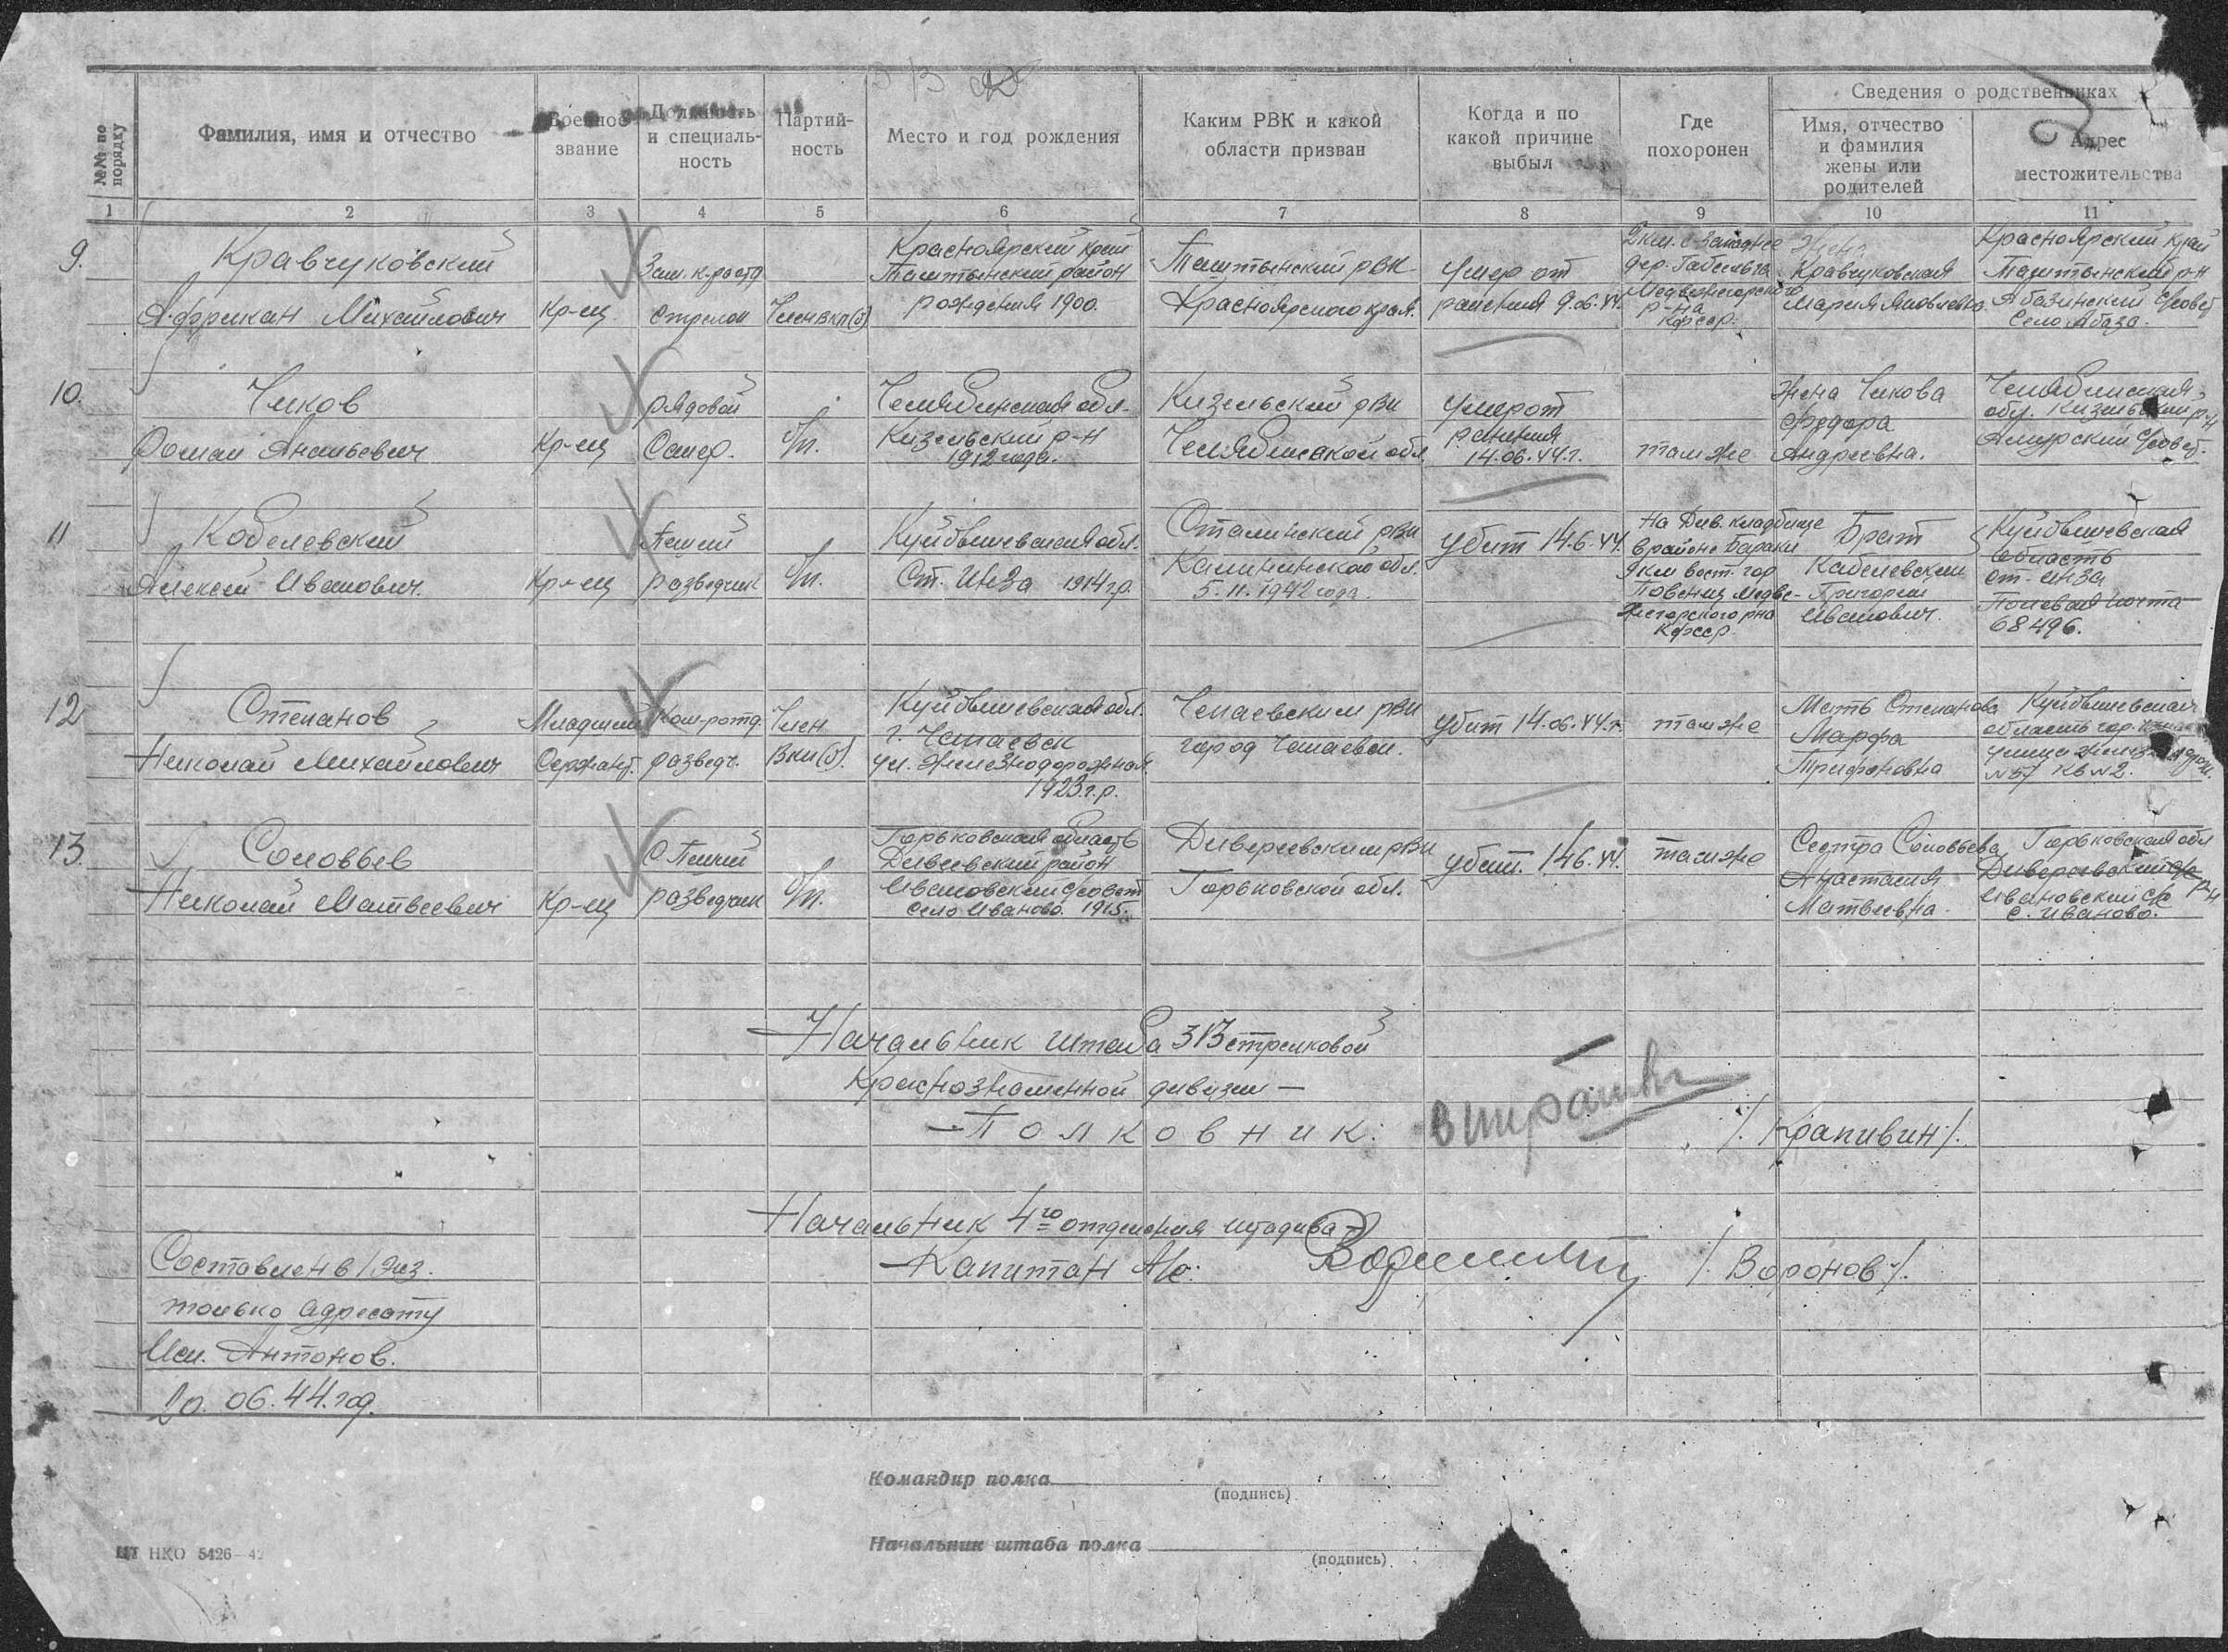 Сведения о родственниках
№№ по порядку
Фамилия, имя и отчество
Военное звание
Должность и специаль-ность
Партий-ность
Место и год рождения
Каким РВК и какой области призван
Когда и по какой причине выбыл
Где похоронен
Имя, отчество и фамилия жены или родителей
Адрес местожительства
1 2 3 4 5 6 7 8 9 10 11
9.
Кравчуковский
Африкан Михайлович
Кр-ец
Зам. к-ра отд
Стрелок
Член ВКП(б)
Красноярский край
Таштыпский район
рождения 1900.
Таштыпский РВК
Красноярского края.
Умер от
ранения 9.06.44.
2 км. с-западнее
дер. Габсельга
Медвежегорского
р-на
Кфсср.
Жена
Кравчуковская
Мария Яковлевна
Красноярский край
Таштыпский р-н
Абазинский с/совет
Село Абаза.
10.
Чиков
Роман Ананьевич
Кр-ец
рядовой
Сапер.
б/п.
Челябинская обл.
Кизельский р-н
1912 года.
Кизельский РВК
Челябинской обл.
Умер от
ранения
14.06.44.г.
там же
жена Чикова
Федора
Андреевна.
Челябинская
обл. Кизельский р-н
Амурский с/совет.
11
Кобелевский
Алексей Иванович.
Кр-ец
Пеший
разведчик
б/п.
Куйбышевская обл.
Ст. Инза 1914 г.р.
Сталинский РВК
Калининской обл.
5.11.1942 года.
убит 14.6.44.
На Див. кладбище
в районе Бараки
9 км вост. гор
Повенец Медве-
жегорского р-на
Кфсср.
Брат
Кабелевский
Григорий
Иванович.
Куйбышевская
область
ст-Инза
Полевая почта
68496.
12
Степанов
Николай Михайлович
Младший
Сержант.
Ком-р отд.
разведч.
Член
ВКП(б).
Куйбышевская обл.
г. Чапаевск
ул. Железнодорожная
1923 г.р.
Чапаевским РВК
город Чапаевск.
убит 14.06.44.г.
там же
Мать Степанова
Марфа
Трифоновна
Куйбышевская
область гор.
улица
№57 кв №2.
13.
Соловьев
Николай Матвеевич
Кр-ец
Пеший
разведчик
б/п.
Горьковская область
Дивеевский район
Ивановский с/совет
село Иваново. 1915.
Дивеевским РВК
Горьковской обл.
убит. 14.6.44.
там же
Сестра Соловьева
Анастасия
Матвеевна.
Горьковская обл
Дивеевский р-н
Ивановский с/с
с. Иваново.
Начальник штаба 313 стрелковой
Краснознаменной дивизии —
— Полковник:
/. Крапивин /.
Начальник 4го отделения штадива —
— Капитан А/с:
/. Воронов /.
Составлен в 1 экз.
только адресату
Исп. Антонов.
20.06.44. год.
Командир полка
(подпись)
Начальник штаба полка
(подпись)
ЦТ НКО 5426—42